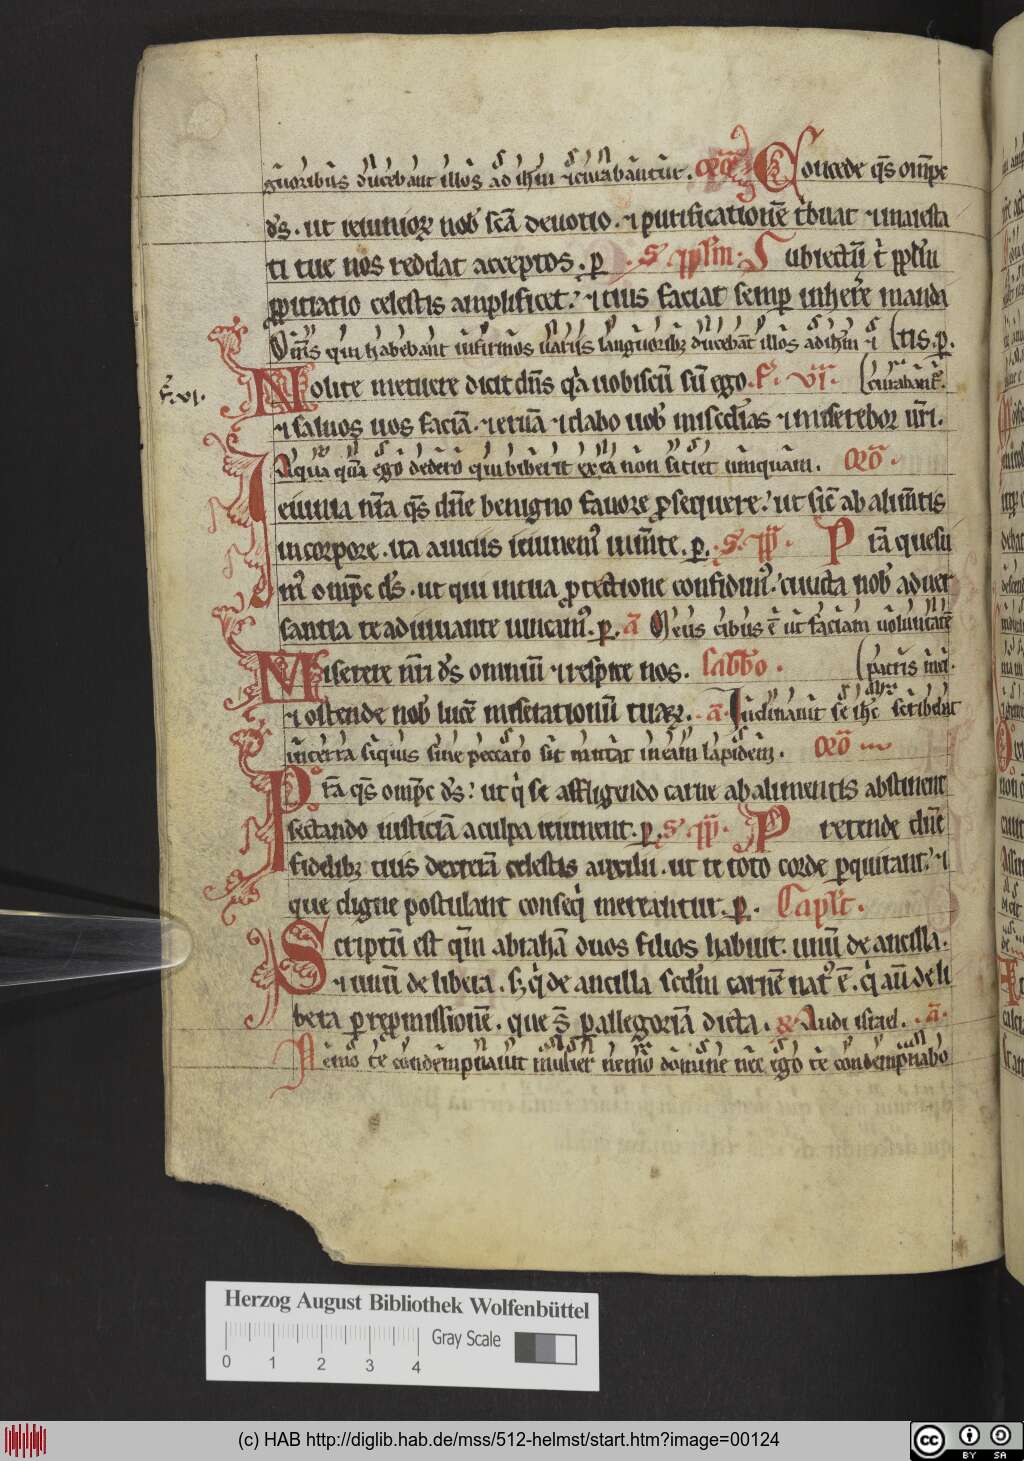 guoribus ducebant illos ad ihm ⁊ curabantur. Orō Concede q̄s omp̄c
ds. ut ieiunior̄ nob̄ scā deuotio. ⁊ purificationē tbuat ⁊ maiesta
ti tue nos reddat acceptos. p S. pplm. Subiectū t̄ pplm
ppitiatio celestis amplificet. ⁊ tuis faciat semp inherē manda
Om̄s qui habebant infirmos uariis languorib; ducebāt illos ad ihm ⁊ (tis. p.
F. vi. Nolite metuere dicit dn̄s q̄a uobiscū sū ego. F. VI. (curabant̄.
⁊ saluos uos faciā. ⁊ eruā ⁊ dabo uob̄ misc̄dias ⁊ miserebor ur̄i.
Aqua quā ego dedero qui biberit ex ea non sitiet umquam. Orō.
Ieiunia nr̄a q̄s dn̄e benigno fauore prosequere. ut sic̄ ab alim̄tis
in corpore. ita a uiciis ieiunem⁹ in m̄te. p. S. pp̄. P tā quesu
m⁹ omp̄c ds. ut qui in tua protectione confidim⁹. cuncta nob̄ aduer
santia te adiuuante uincam⁹. p. ā Meus cibus ē ut faciam uoluntatē
Miserere nr̄i ds omniū ⁊ respice nos. Sabbō. (patris mei.
⁊ ostende nob̄ lucē miserationū tuar̄. ā. Inclinauit se ihc scribebat
in terra siquis sine peccato sit mittat in eam lapidem. Orō
P tā q̄s omp̄c ds. ut q̄ se affligendo carne ab alimentis abstinent
sectando iusticiā a culpa ieiunent. p. S. pp̄. P retende dn̄e
fidelib; tuis dexterā celestis auxilii. ut te toto corde pquirant. ⁊
que digne postulant conseq̄ mereantur. p. Capl̄t.
Scriptū est qm̄ abrahā duos filios habuit. unū de ancilla.
⁊ unū de libera. s; q̄ de ancilla scdm carnē nat⁹ ē. q̄ aū de li
bera p repmissionē. que s̄ p allegoriā dicta. & Audi israel. ā.
Nemo te condempnauit mulier nemo domine nec ego te condempnabo
Herzog August Bibliothek Wolfenbüttel
Gray Scale
0 1 2 3 4
(c) HAB http://diglib.hab.de/mss/512-helmst/start.htm?image=00124
cc BY SA